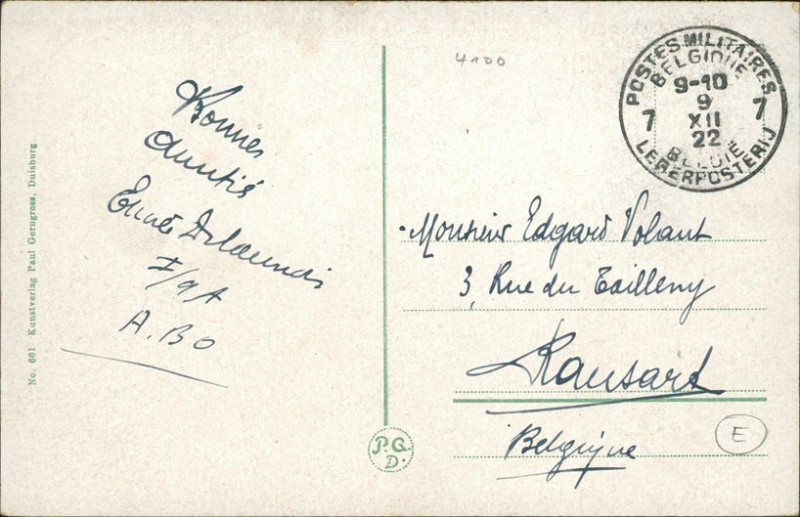 No. 661 Kunstverlag Paul Gerngross, Duisburg.
Bonnes
amitiés
Delaunois
I/9A
A.B.O
4100
POSTES MILITAIRES
BELGIQUE
9-10
9
XII
22
7 7
BELGIE
LEGERPOSTERIJ
Monsieur Edgard Volant
3, Rue du Tailleny
Ransart
Belgique
E
P.G.
D.